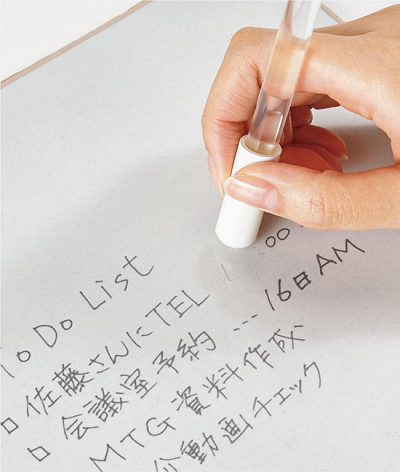 To Do List
□ 佐藤さんにTEL 1 00
□ 会議室予約 … 16日AM
MTG資料作成
動画チェック